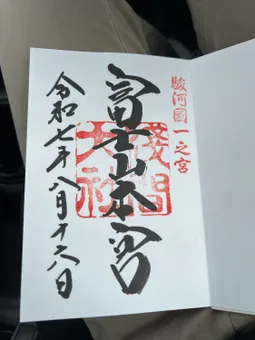 駿河國一之宮
富士山本宮
淺間
大社
令和七年八月十六日